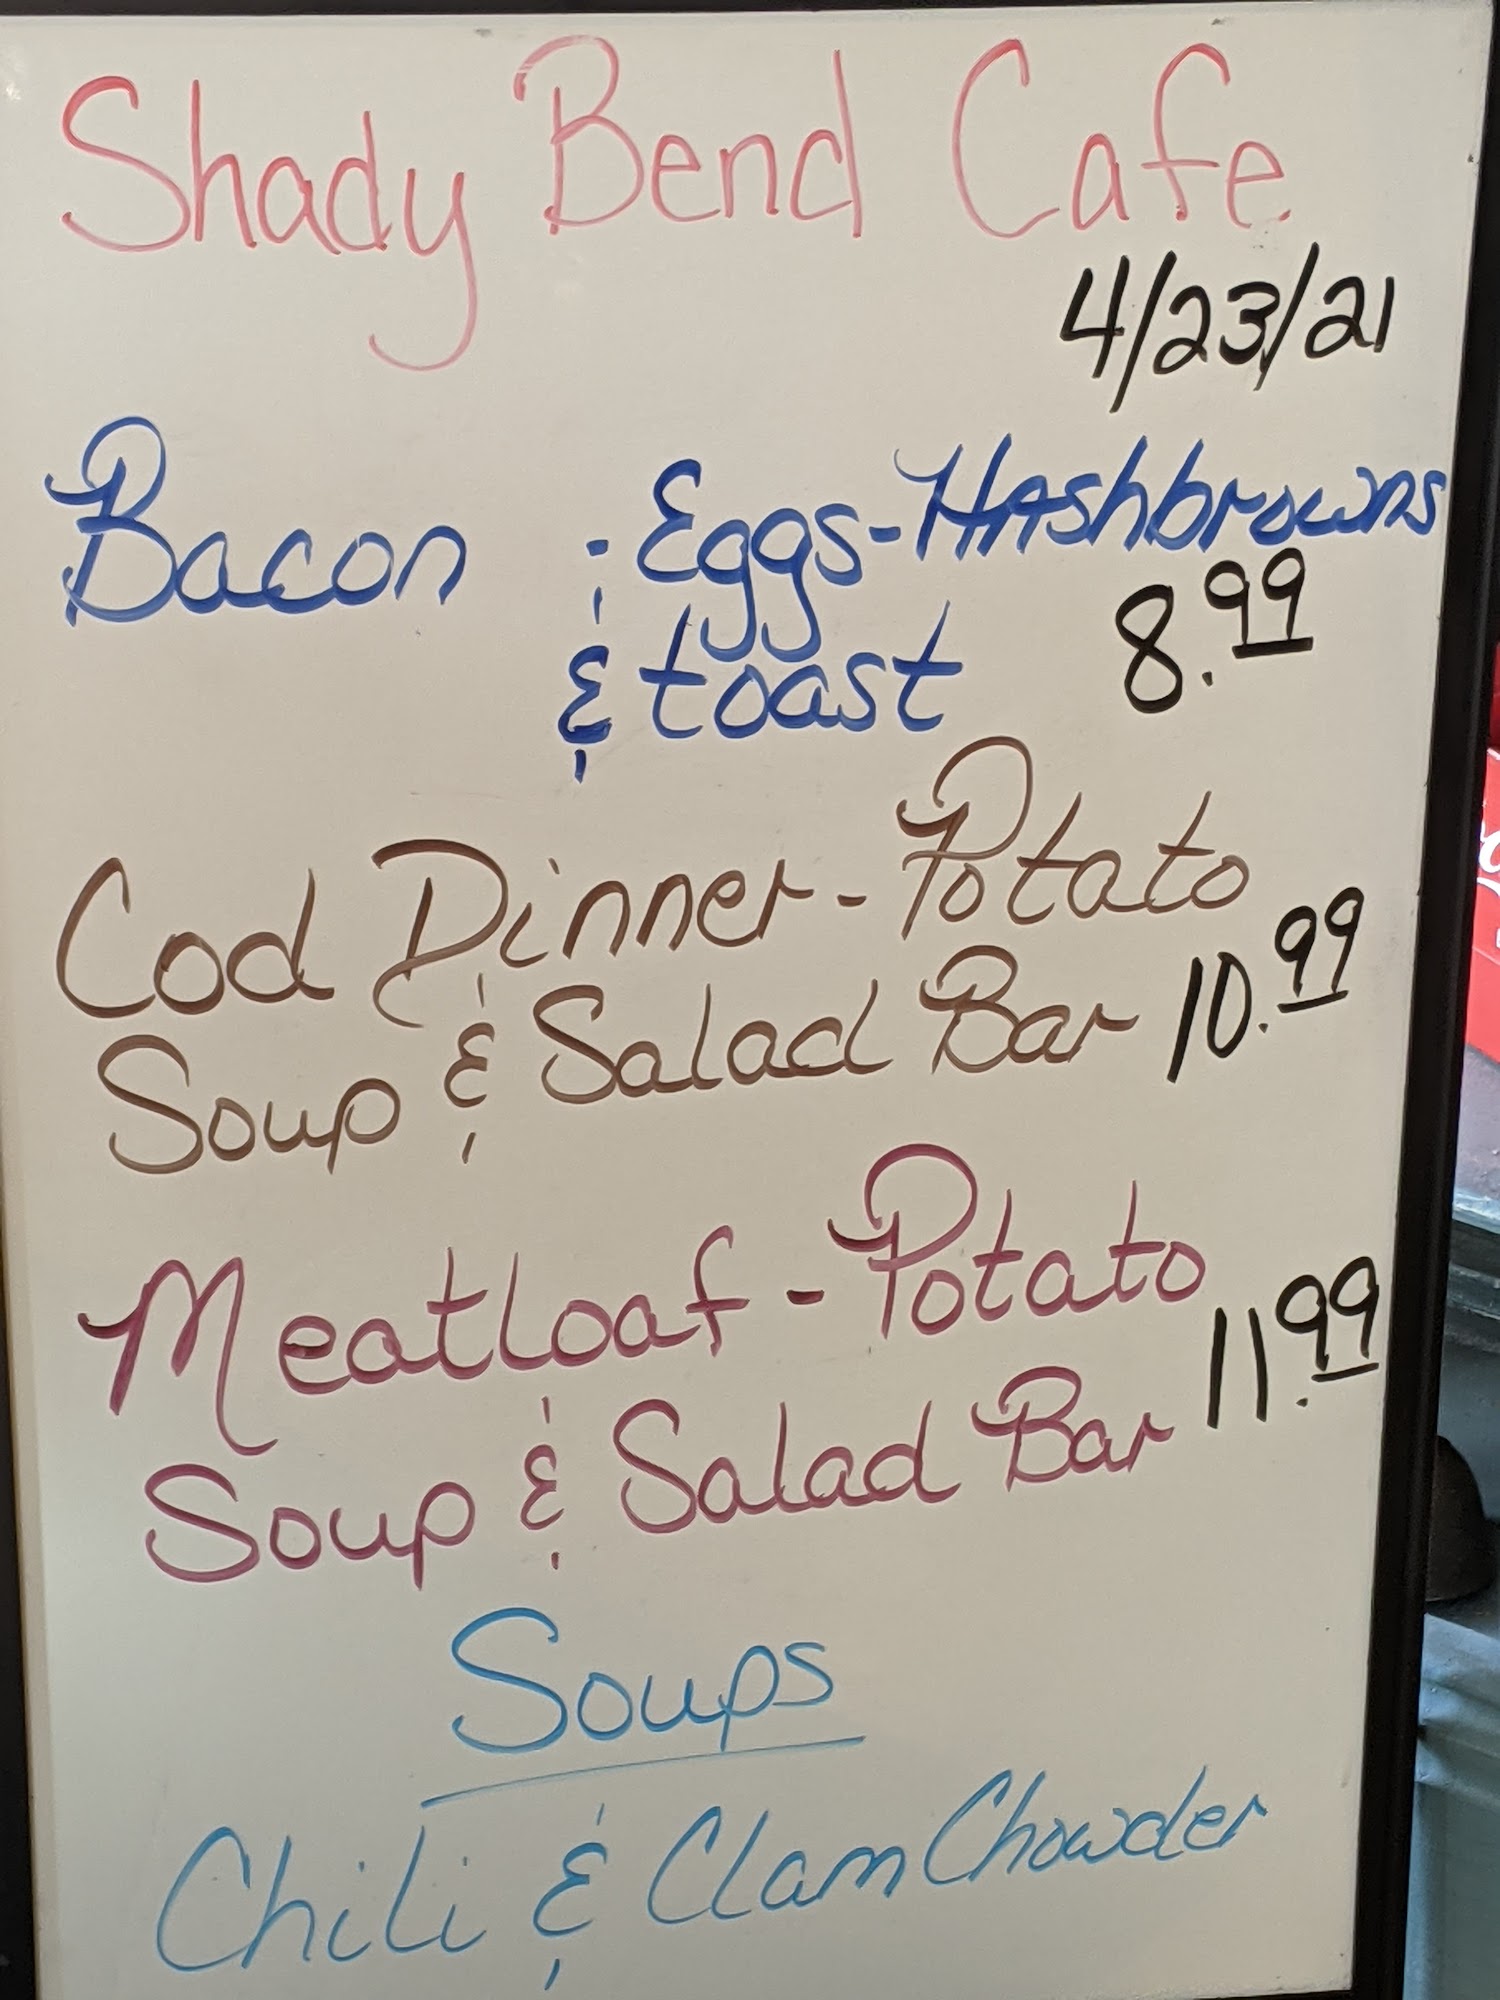 Shady Bend Cafe
4/23/21
Bacon & Eggs-Hashbrowns
& toast 8.99
Cod Dinner-Potato
Soup & Salad Bar 10.99
Meatloaf-Potato
Soup & Salad Bar 11.99
Soups
Chili & Clam Chowder